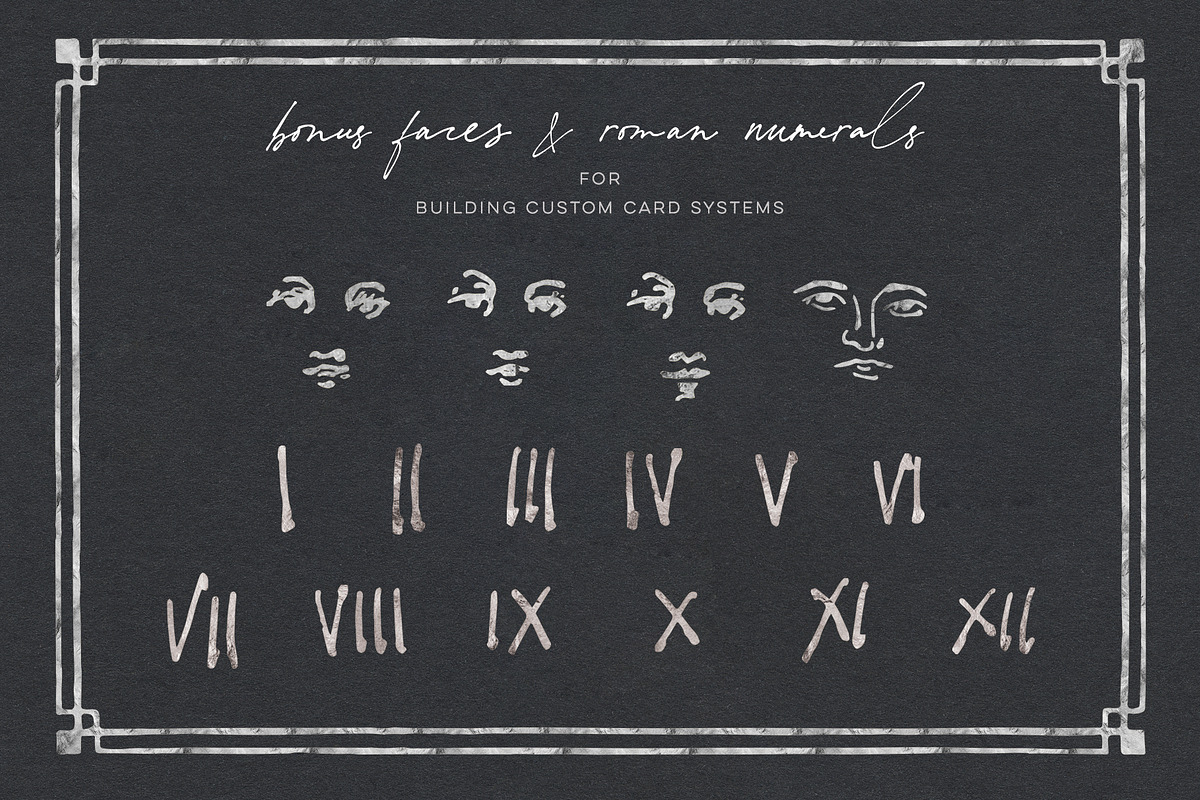 bonus faces & roman numerals
FOR
BUILDING CUSTOM CARD SYSTEMS
I II III IV V VI
VII VIII IX X XI XII